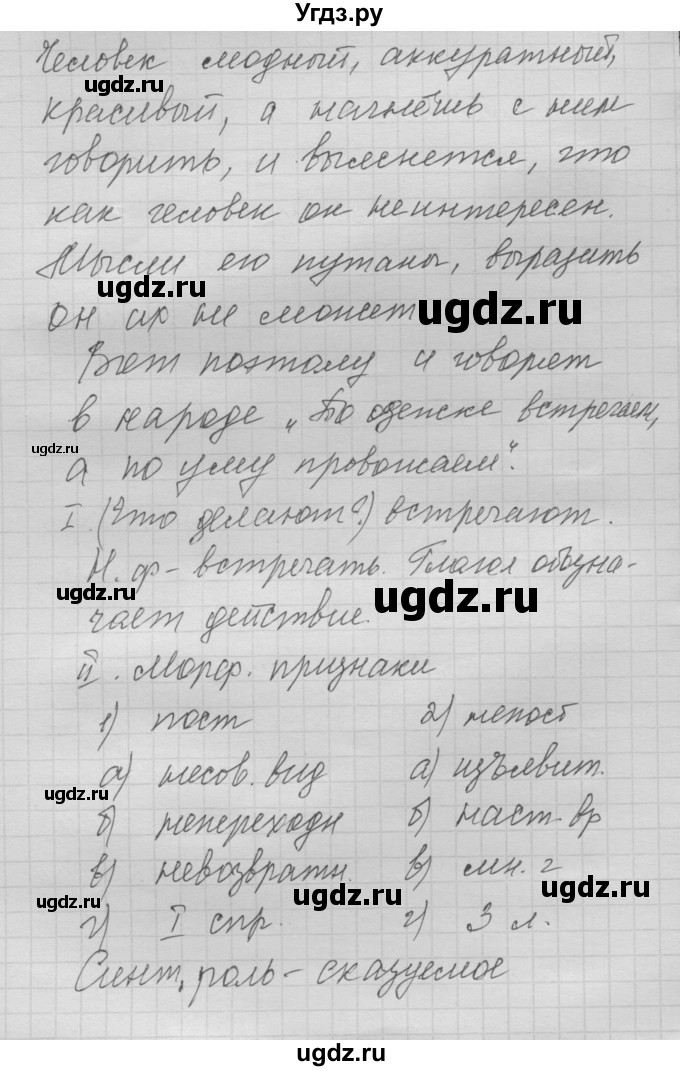 Угдз.ру
Человек модный, аккуратный,
красивый, а начнёшь с ним
говорить, и выяснется, что
как человек он неинтересен.
Мысли его путаны, выразить
он их не может
Вот поэтому и говорят
в народе „По одежке встречаем,
а по уму провожаем".
I. (Что делают?) встречают.
Н. ф - встречать. Глагол обозна-
чает действие.
II. Морф. признаки
1) пост 2) непост
а) несов. вид а) изъявит.
б) непереходн б) наст. вр
в) невозвратн. в) мн. ч
г) I спр. г) 3 л.
Синт. роль - сказуемое
ugdz.ru
ugdz.ru
ugdz.ru
ugdz.ru
ugdz.ru
ugdz.ru
ugdz.ru
ugdz.ru
ugdz.ru
ugdz.ru
ugdz.ru
ugdz.ru
ugdz.ru